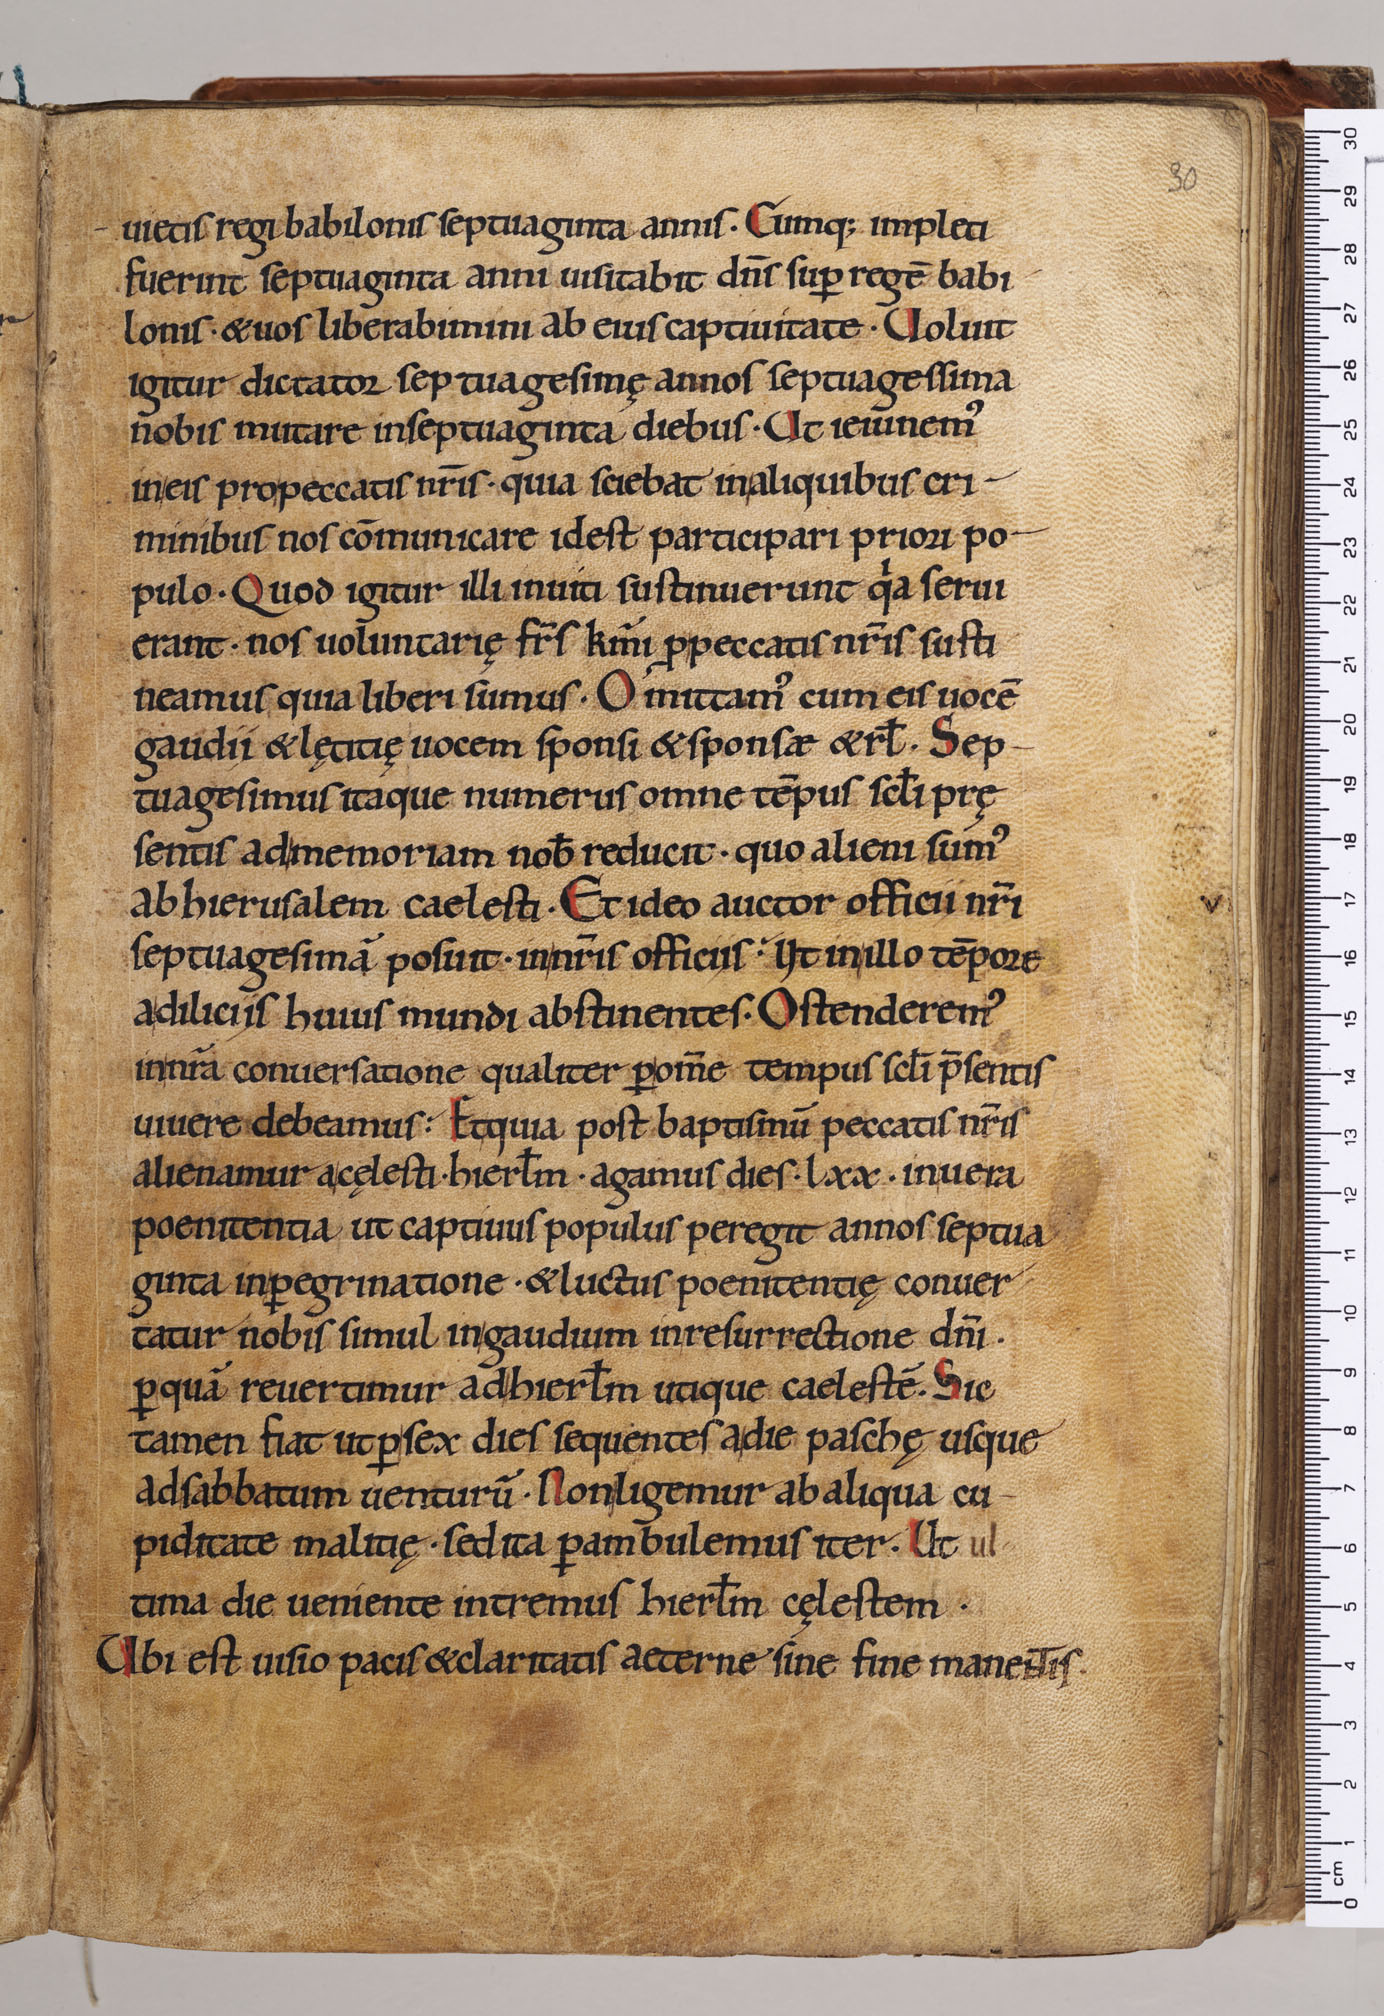 30
uietis regi babilonis septuaginta annis. Cumq; impleti
fuerint septuaginta anni uisitabit dn̄s sup̱ regē babi
lonis. &uos liberabimini ab eius captiuitate. Uoluit
igitur dictator septuagesimę annos septuagessima
nobis mutare inseptuaginta diebus. Ut ieiunem᾿
ineis propeccatis nr̄is. quia sciebat inaliquibus cri-
minibus nos cōmunicare idest participari priori po-
pulo. Quod igitur illi inuiti sustinuerunt qͥa serui
erant. nos uoluntarię fr̄s km̄i p̱peccatis nr̄is susti
neamus quia liberi sumus. Omittam᾿ cum eis uocē
gaudii &lętitię uocem sponsi &sponsæ &rł. Sep-
tuagesimus itaque numerus omne tēpus scłi prę
sentis admemoriam nob̄ reducit. quo alieni sum᾿
abhierusalem caelesti. Et ideo auctor officii nr̄i
septuagesimā posuit. innr̄is officiis. Ut inillo tēpore
adiliciis huius mundi abstinentes. Ostenderem᾿
innr̄a conuersatione qualiter p̱om̄e tempus scłi p̄sentis
uiuere debeamus: Etquia post baptismū peccatis nr̄is
alienamur acęlesti. hierłm. agamus dies. lxx. inuera
poenitentia ut captiuus populus peregit annos septua
ginta inp̱egrinatione. &luctus poenitentię conuer
tatur nobis simul ingaudium inresurrectione dn̄i.
p̱quā reuertimur adhierłm utique caelestē. Sic
tamen fiat utp̱sex dies sequentes adie paschę usque
adsabbatum uenturū. Nonligemur abaliqua cu-
piditate malitię. sedita p̱ambulemus iter. Ut ul
tima die ueniente intremus hierłm cęlestem.
Ubi est uisio pacis &claritatis aeterne sine fine manentis.